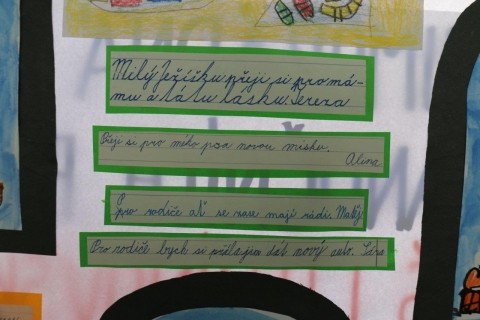 Milý Ježíšku přeji si pro má-
mu a tátu lásku Tereza
Přeji si pro mého psa novou misku.
Alina
P
pro rodiče ať se zase mají rádi. Matěj
Pro rodiče bych si přála dát nový auto.